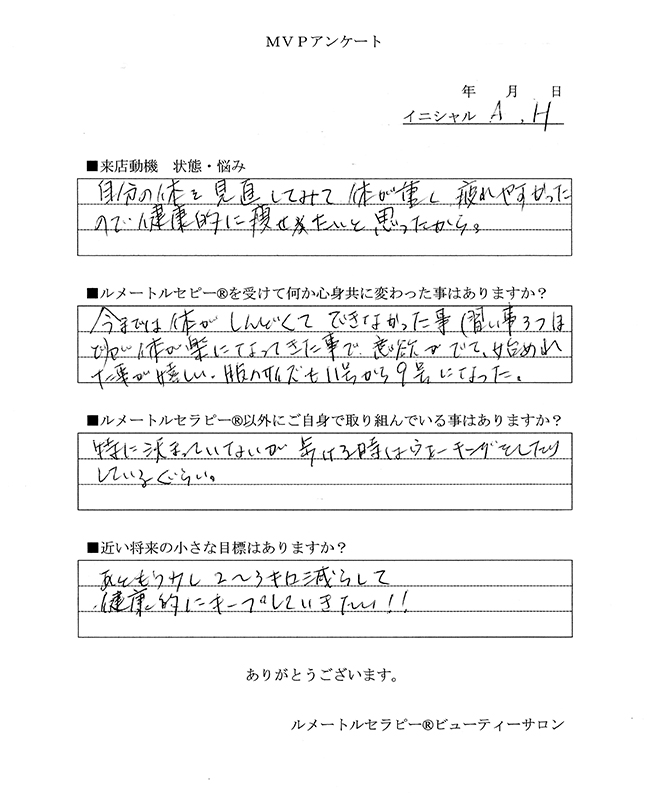 MVPアンケート
年 月 日
イニシャル A.H
■来店動機 状態・悩み
自分の体を見直してみて 体が重く 疲れやすかった
ので健康的に痩せたいと思ったから。
■ルメートルセピー®を受けて何か心身共に変わった事はありますか？
今までは体がしんどくて できなかった事(習い事3つほ
ど)が体が楽になってきた事で、意欲がでて、始めれ
た事が嬉しい。服のサイズも11号から9号になった。
■ルメートルセラピー®以外にご自身で取り組んでいる事はありますか？
特に決まっていないが 歩ける時はウォーキングをしたり
しているぐらい。
■近い将来の小さな目標はありますか？
あともう少し 2〜3キロ減らして
健康的にキープしていきたい!!
ありがとうございます。
ルメートルセラピー®ビューティーサロン